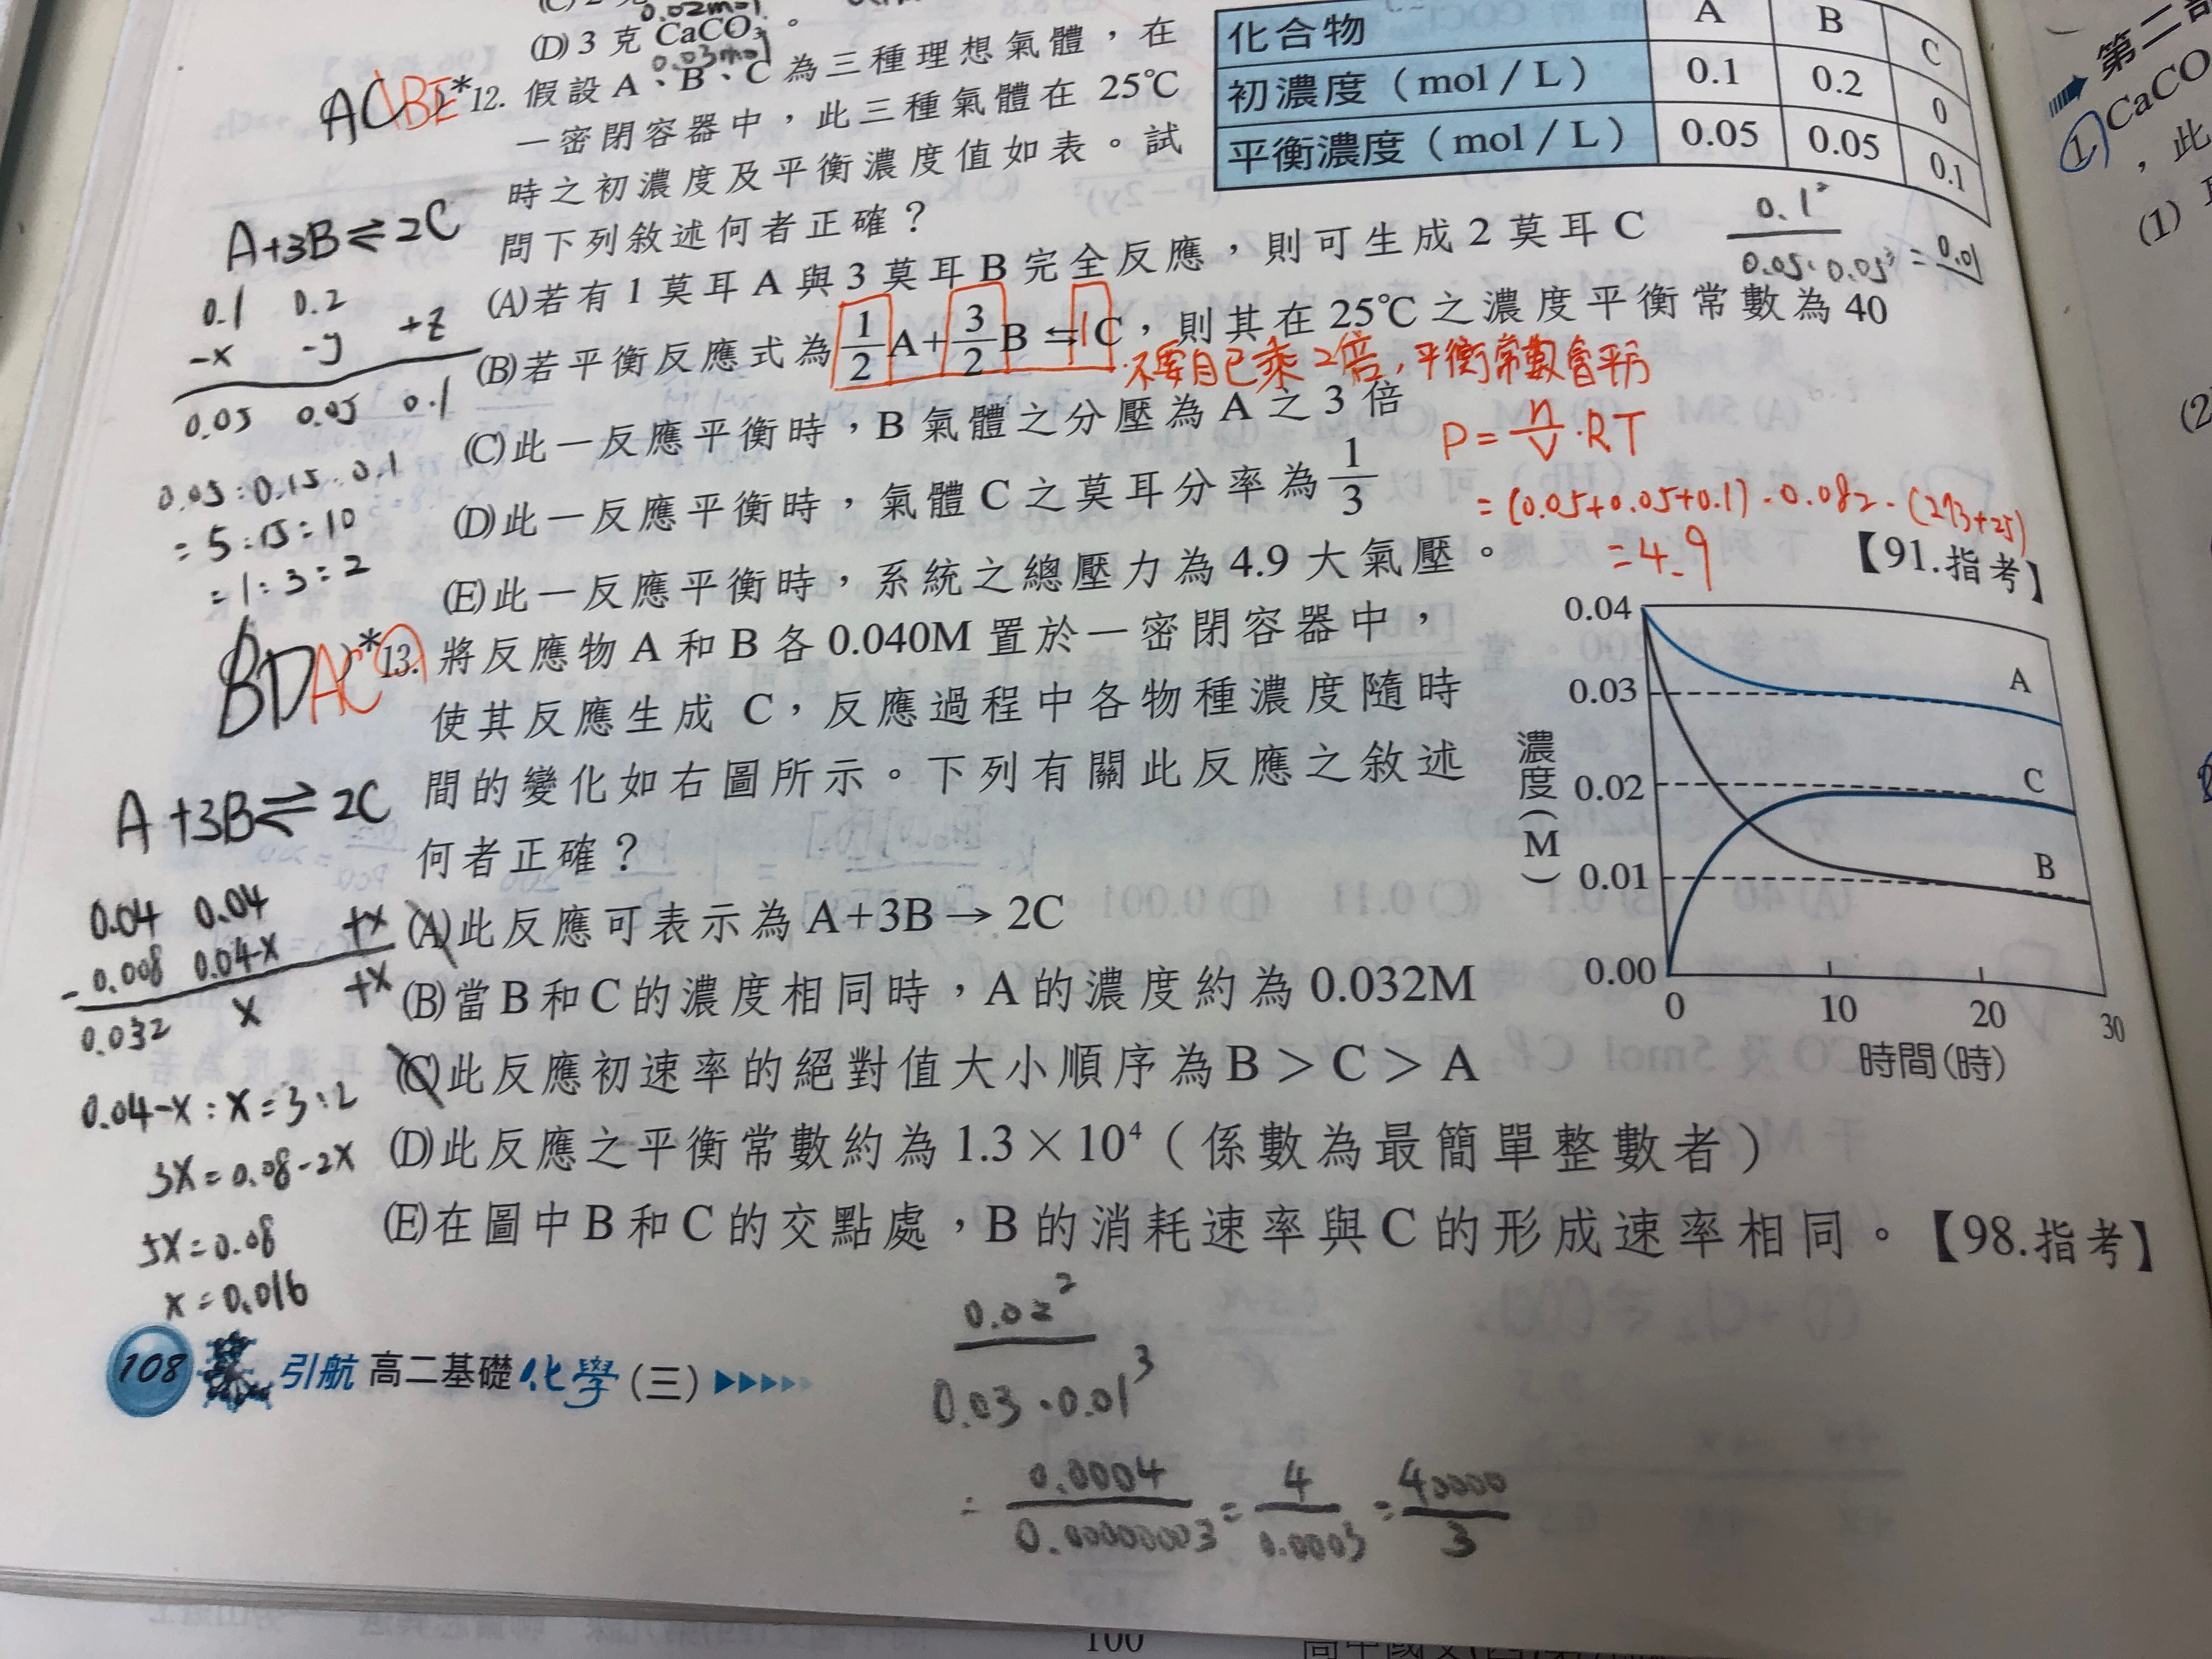 0.02mol
(D) 3 克 CaCO₃。
0.03mol
化合物 A B C
初濃度（mol／L） 0.1 0.2 0
平衡濃度（mol／L） 0.05 0.05 0.1
AC ABE
*12. 假設 A、B、C 為三種理想氣體，在
一密閉容器中，此三種氣體在 25℃
時之初濃度及平衡濃度值如表。試
問下列敘述何者正確？
(A)若有 1 莫耳 A 與 3 莫耳 B 完全反應，則可生成 2 莫耳 C
(B)若平衡反應式為 1/2 A + 3/2 B ⇆ C，則其在 25℃ 之濃度平衡常數為 40
不要自己乘2倍,平衡常數會平方
(C)此一反應平衡時，B 氣體之分壓為 A 之 3 倍
(D)此一反應平衡時，氣體 C 之莫耳分率為 1/3
(E)此一反應平衡時，系統之總壓力為 4.9 大氣壓。
【91.指考】
A+3B⇌2C
0.1 0.2
-x -y +z
0.05 0.05 0.1
0.05:0.15:0.1
=5:15:10
=1:3:2
0.1²
0.05·0.05³ = 0.01
P = n/V ·RT
= (0.05+0.05+0.1)·0.082·(273+25)
=4.9
BD AC
*13. 將反應物 A 和 B 各 0.040M 置於一密閉容器中，
使其反應生成 C，反應過程中各物種濃度隨時
間的變化如右圖所示。下列有關此反應之敘述
何者正確？
(A)此反應可表示為 A+3B → 2C
(B)當 B 和 C 的濃度相同時，A 的濃度約為 0.032M
(C)此反應初速率的絕對值大小順序為 B＞C＞A
(D)此反應之平衡常數約為 1.3×10⁴（係數為最簡單整數者）
(E)在圖中 B 和 C 的交點處，B 的消耗速率與 C 的形成速率相同。【98.指考】
濃度(M)
0.04
0.03
0.02
0.01
0.00
A
C
B
0 10 20 30
時間(時)
A+3B⇌2C
0.04 0.04
-0.008 0.04-x +x
0.032 x +x
0.04-x:x=3:2
3x=0.08-2x
5x=0.08
x=0.016
0.02²
0.03·0.01³
= 0.0004/0.00000003 = 4/0.0003 = 40000/3
108 引航 高二基礎化學(三)
第二部
① CaCO
，此
(1)
(2)
100